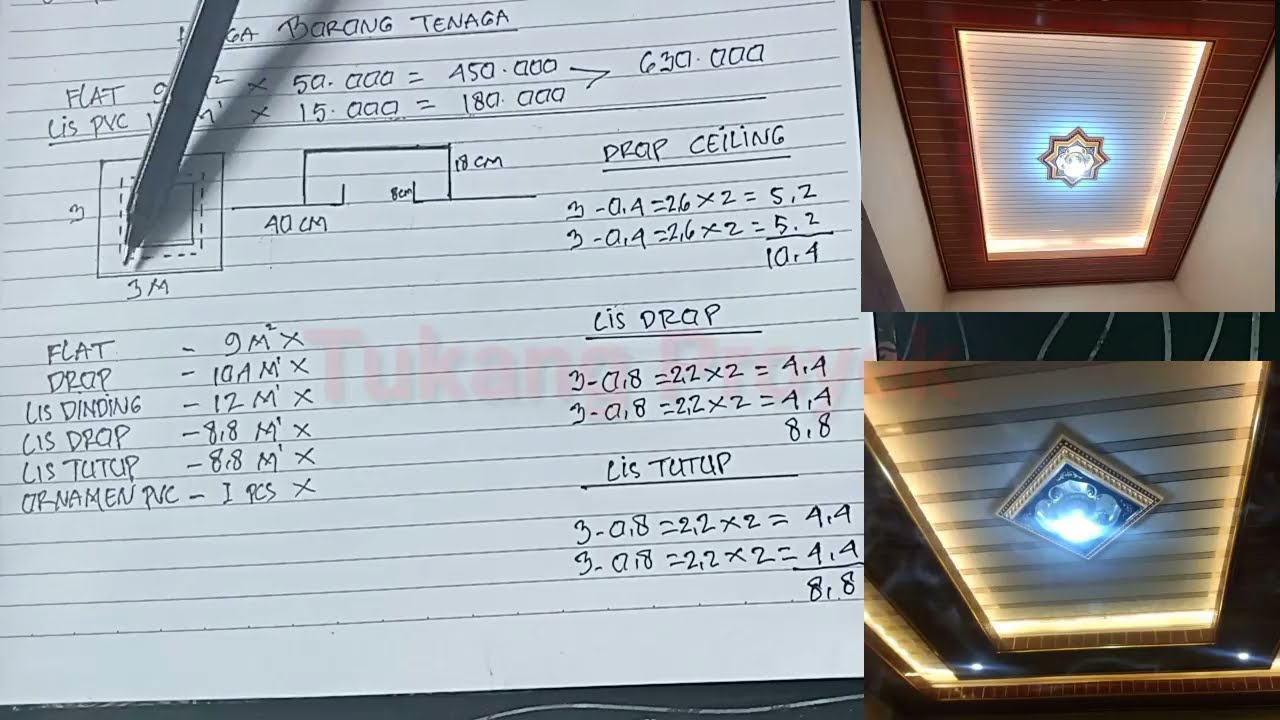 BORONG TENAGA
FLAT 9 × 50.000 = 450.000 > 630.000
Lis PVC 1 M' × 15.000 = 180.000
3
3 M
40 CM
8cm
18 CM
DROP CEILING
3-0.4=26×2=5,2
3-0,4=2,6×2=5.2
10.4
FLAT - 9M² X
DROP - 10,4 M' X
LIS DINDING - 12 M' X
LIS DROP - 8,8 M' X
LIS TUTUP - 8.8 M' X
ORNAMEN PVC - 1 PCS X
LIS DROP
3-0,8=22×2=4,4
3-0,8=2,2×2=4,4
8,8
LIS TUTUP
3-0,8=2,2×2=4,4
3-0,8=2,2×2=4,4
8,8
Tukang Proyek